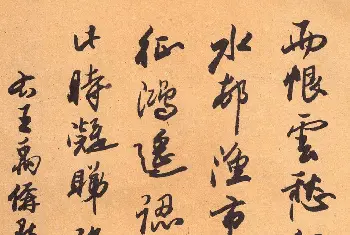 雨恨雲愁
水都漁市
征鴻遥認
此時凝睇
右王禹偁